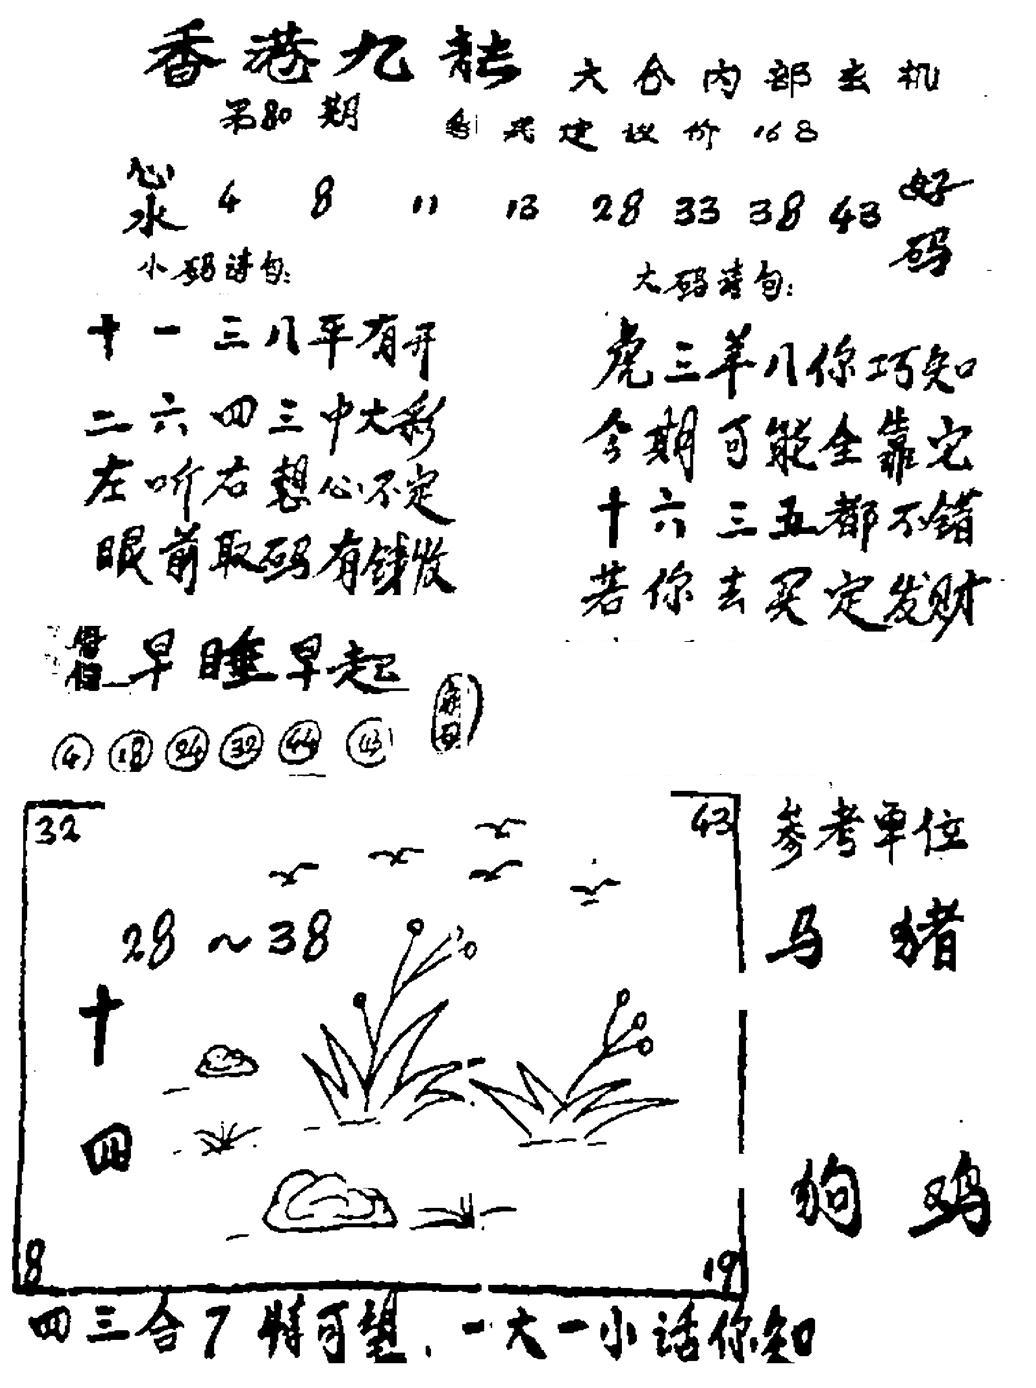 香港九龙 六合内部玄机
第80期 彩民建议价168
心水 4 8 11 13 28 33 38 43 好码
小码诗句: 大码诗句:
十一三八平有开
二六四三中大彩
左听右想心不定
眼前取码有钱收
虎三羊八你巧知
今期可能全靠它
十六三五都不错
若你去买定发财
早睡早起
4 18 24 32 44 43
32 43
28~38
十四
8 19
参考单位
马 猪
狗 鸡
四三合7特可望.一大一小话你知